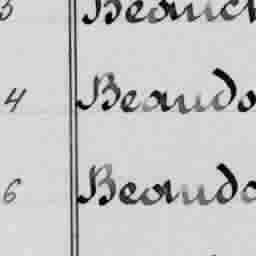 5 Beauch
4 Beaudo
6 Beaudo